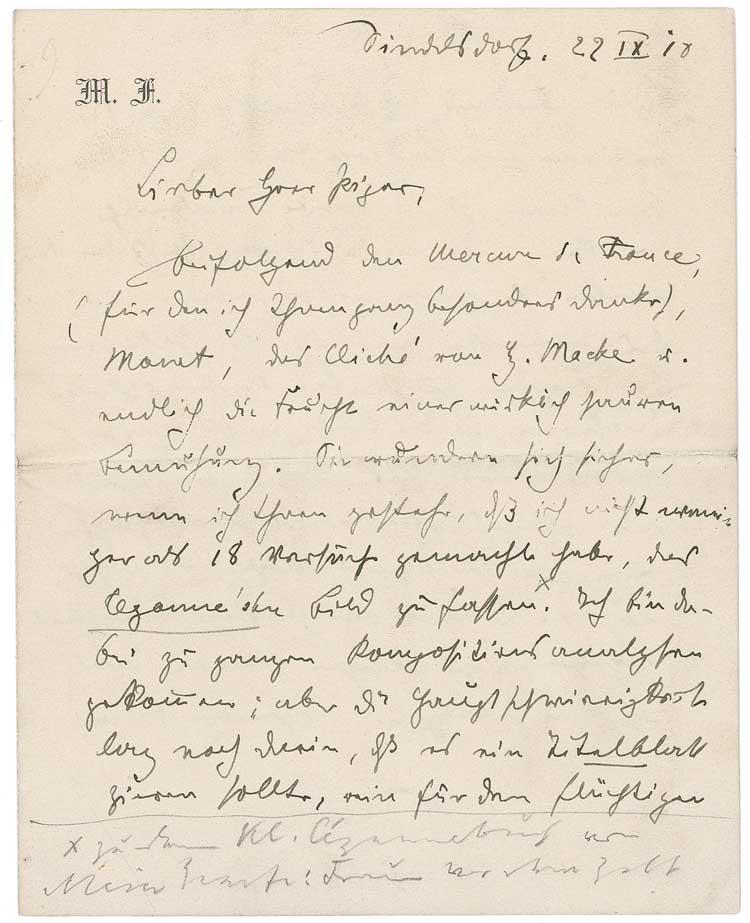 Sindelsdorf. 22 IX 10
M. F.
Lieber Herr Piper,
beifolgend den Mercure de France,
(für den ich Ihnen ganz besonders danke),
Manet, das Cliché von H. Macke u.
endlich die Frucht einer wirklich sauren
Bemühung. Sie wundern sich sicher,
wenn ich Ihnen gestehe, dß ich nicht weni-
ger als 18 Versuche gemacht habe, das
Cézanne'sche Bild zu fassen.x Ich bin da-
bei zu ganzen Kompositionsanalysen
gekommen; aber die Hauptschwierigkeit
lag noch darin, dß es ein Titelblatt
zieren sollte, rein für den flüchtigen
x zu dem Kl. Cézannebuch von
Meier Graefe: